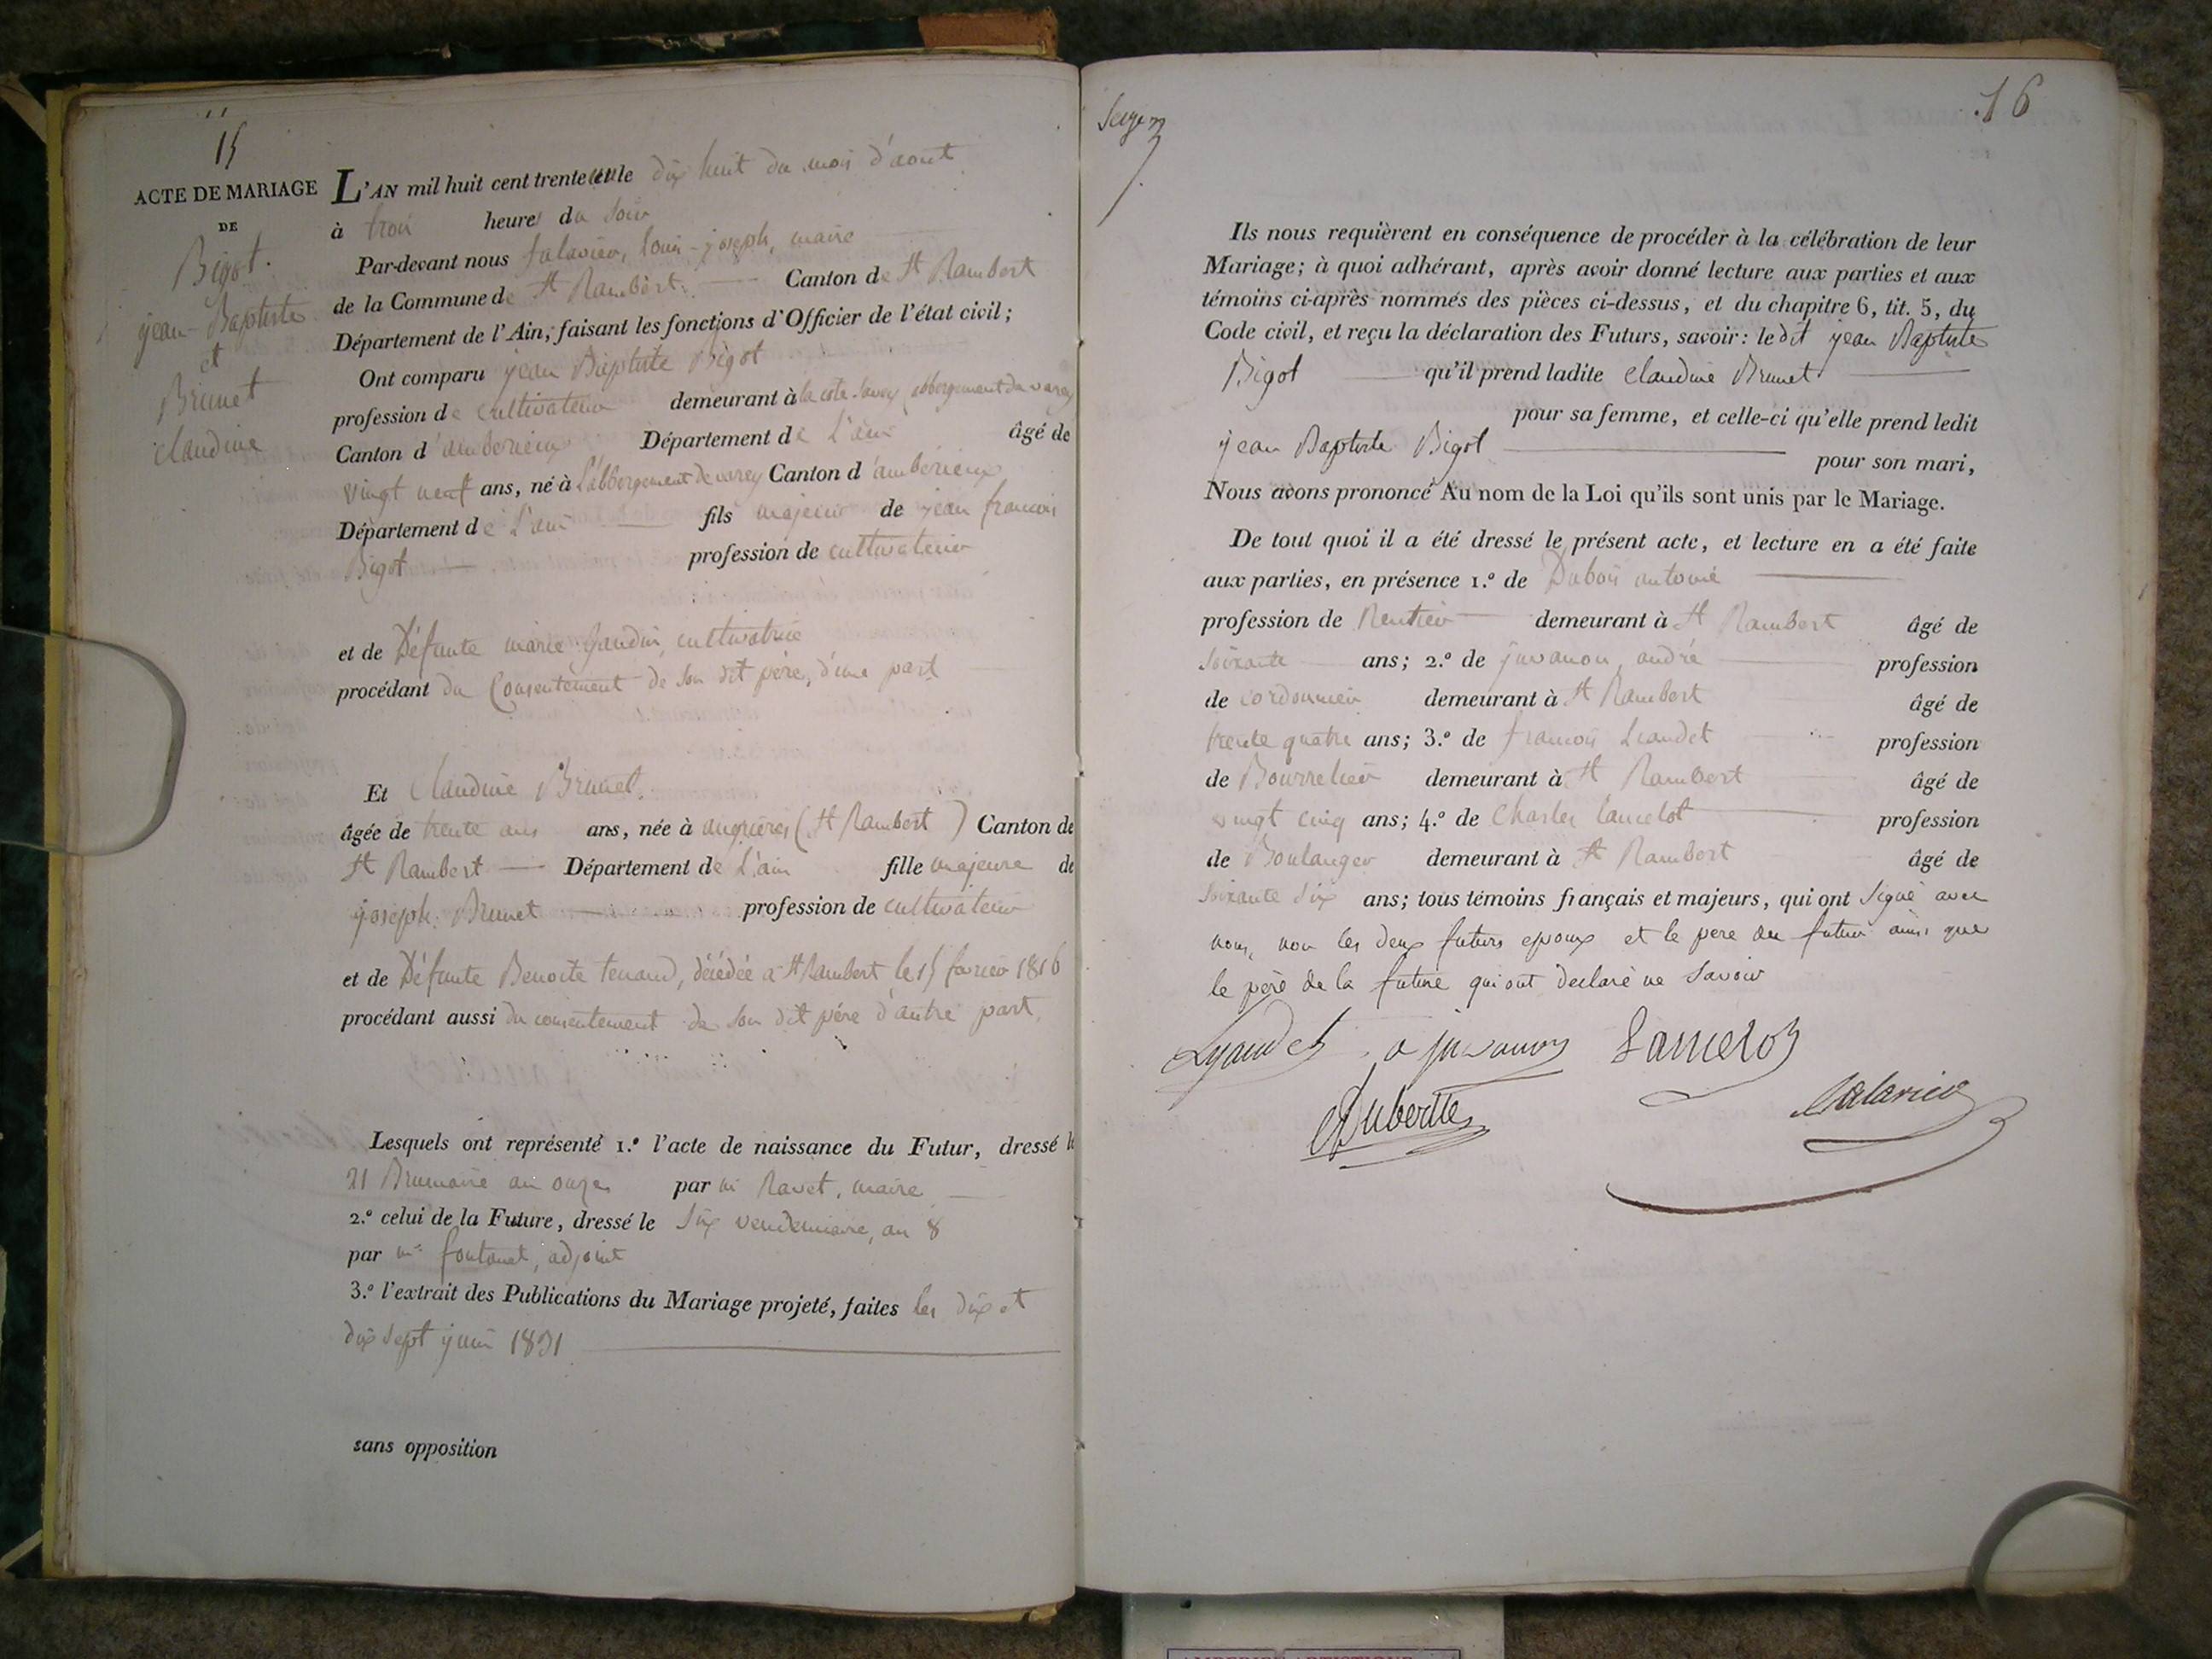 15
ACTE DE MARIAGE
DE
Bigot.
jean-Baptiste
et
Brunet
claudine
L'AN mil huit cent trente le dix huit du mois d'aout
à trois heures du soir
Par-devant nous louis-joseph, maire
de la Commune de St Rambert. Canton de St Rambert
Département de l'Ain, faisant les fonctions d'Officier de l'état civil;
Ont comparu jean Baptiste Bigot
profession de cultivateur demeurant à la cote Savey abbergement de varey
Canton d'amberieux Département de L'ain âgé de
vingt neuf ans, né à L'abbergement de varey Canton d'amberieux
Département de L'ain fils majeur de jean francois
Bigot profession de cultivateur
et de Défunte marie Gaudin, cultivatrice
procédant du Consentement de son dit père, d'une part
Et Claudine Brunet.
âgée de trente ans ans, née à angrieres (St Rambert) Canton de
St Rambert Département de L'ain fille majeure de
joseph Brunet profession de cultivateur
et de Défunte Benoite tenand, décédée à St Rambert le 15 fevrier 1816
procédant aussi du consentement de son dit père d'autre part.
Lesquels ont représenté 1.º l'acte de naissance du Futur, dressé le
21 Brumaire an onze par m Ravet, maire
2.º celui de la Future, dressé le six vendemiaire, an 8
par mr fontanet, adjoint
3.º l'extrait des Publications du Mariage projeté, faites les dix et
dix sept juin 1831
sans opposition
16
Ils nous requièrent en conséquence de procéder à la célébration de leur
Mariage; à quoi adhérant, après avoir donné lecture aux parties et aux
témoins ci-après nommés des pièces ci-dessus, et du chapitre 6, tit. 5, du
Code civil, et reçu la déclaration des Futurs, savoir: le dit jean Baptiste
Bigot qu'il prend ladite claudine Brunet
pour sa femme, et celle-ci qu'elle prend ledit
jean Baptiste Bigot pour son mari,
Nous avons prononcé Au nom de la Loi qu'ils sont unis par le Mariage.
De tout quoi il a été dressé le présent acte, et lecture en a été faite
aux parties, en présence 1.º de Dubois antoine
profession de Rentier demeurant à St Rambert âgé de
soixante ans; 2.º de juvanon, andré profession
de cordonnier demeurant à St Rambert âgé de
trente quatre ans; 3.º de francois Liaudet profession
de Bourrelier demeurant à St Rambert âgé de
vingt cinq ans; 4.º de Charles Lancelot profession
de Boulanger demeurant à St Rambert âgé de
soixante six ans; tous témoins français et majeurs, qui ont signé avec
nous, non les deux futurs epoux et le pere du futur ainsi que
le père de la future qui ont declaré ne savoir
Lyaudet a juvanon Lancelot